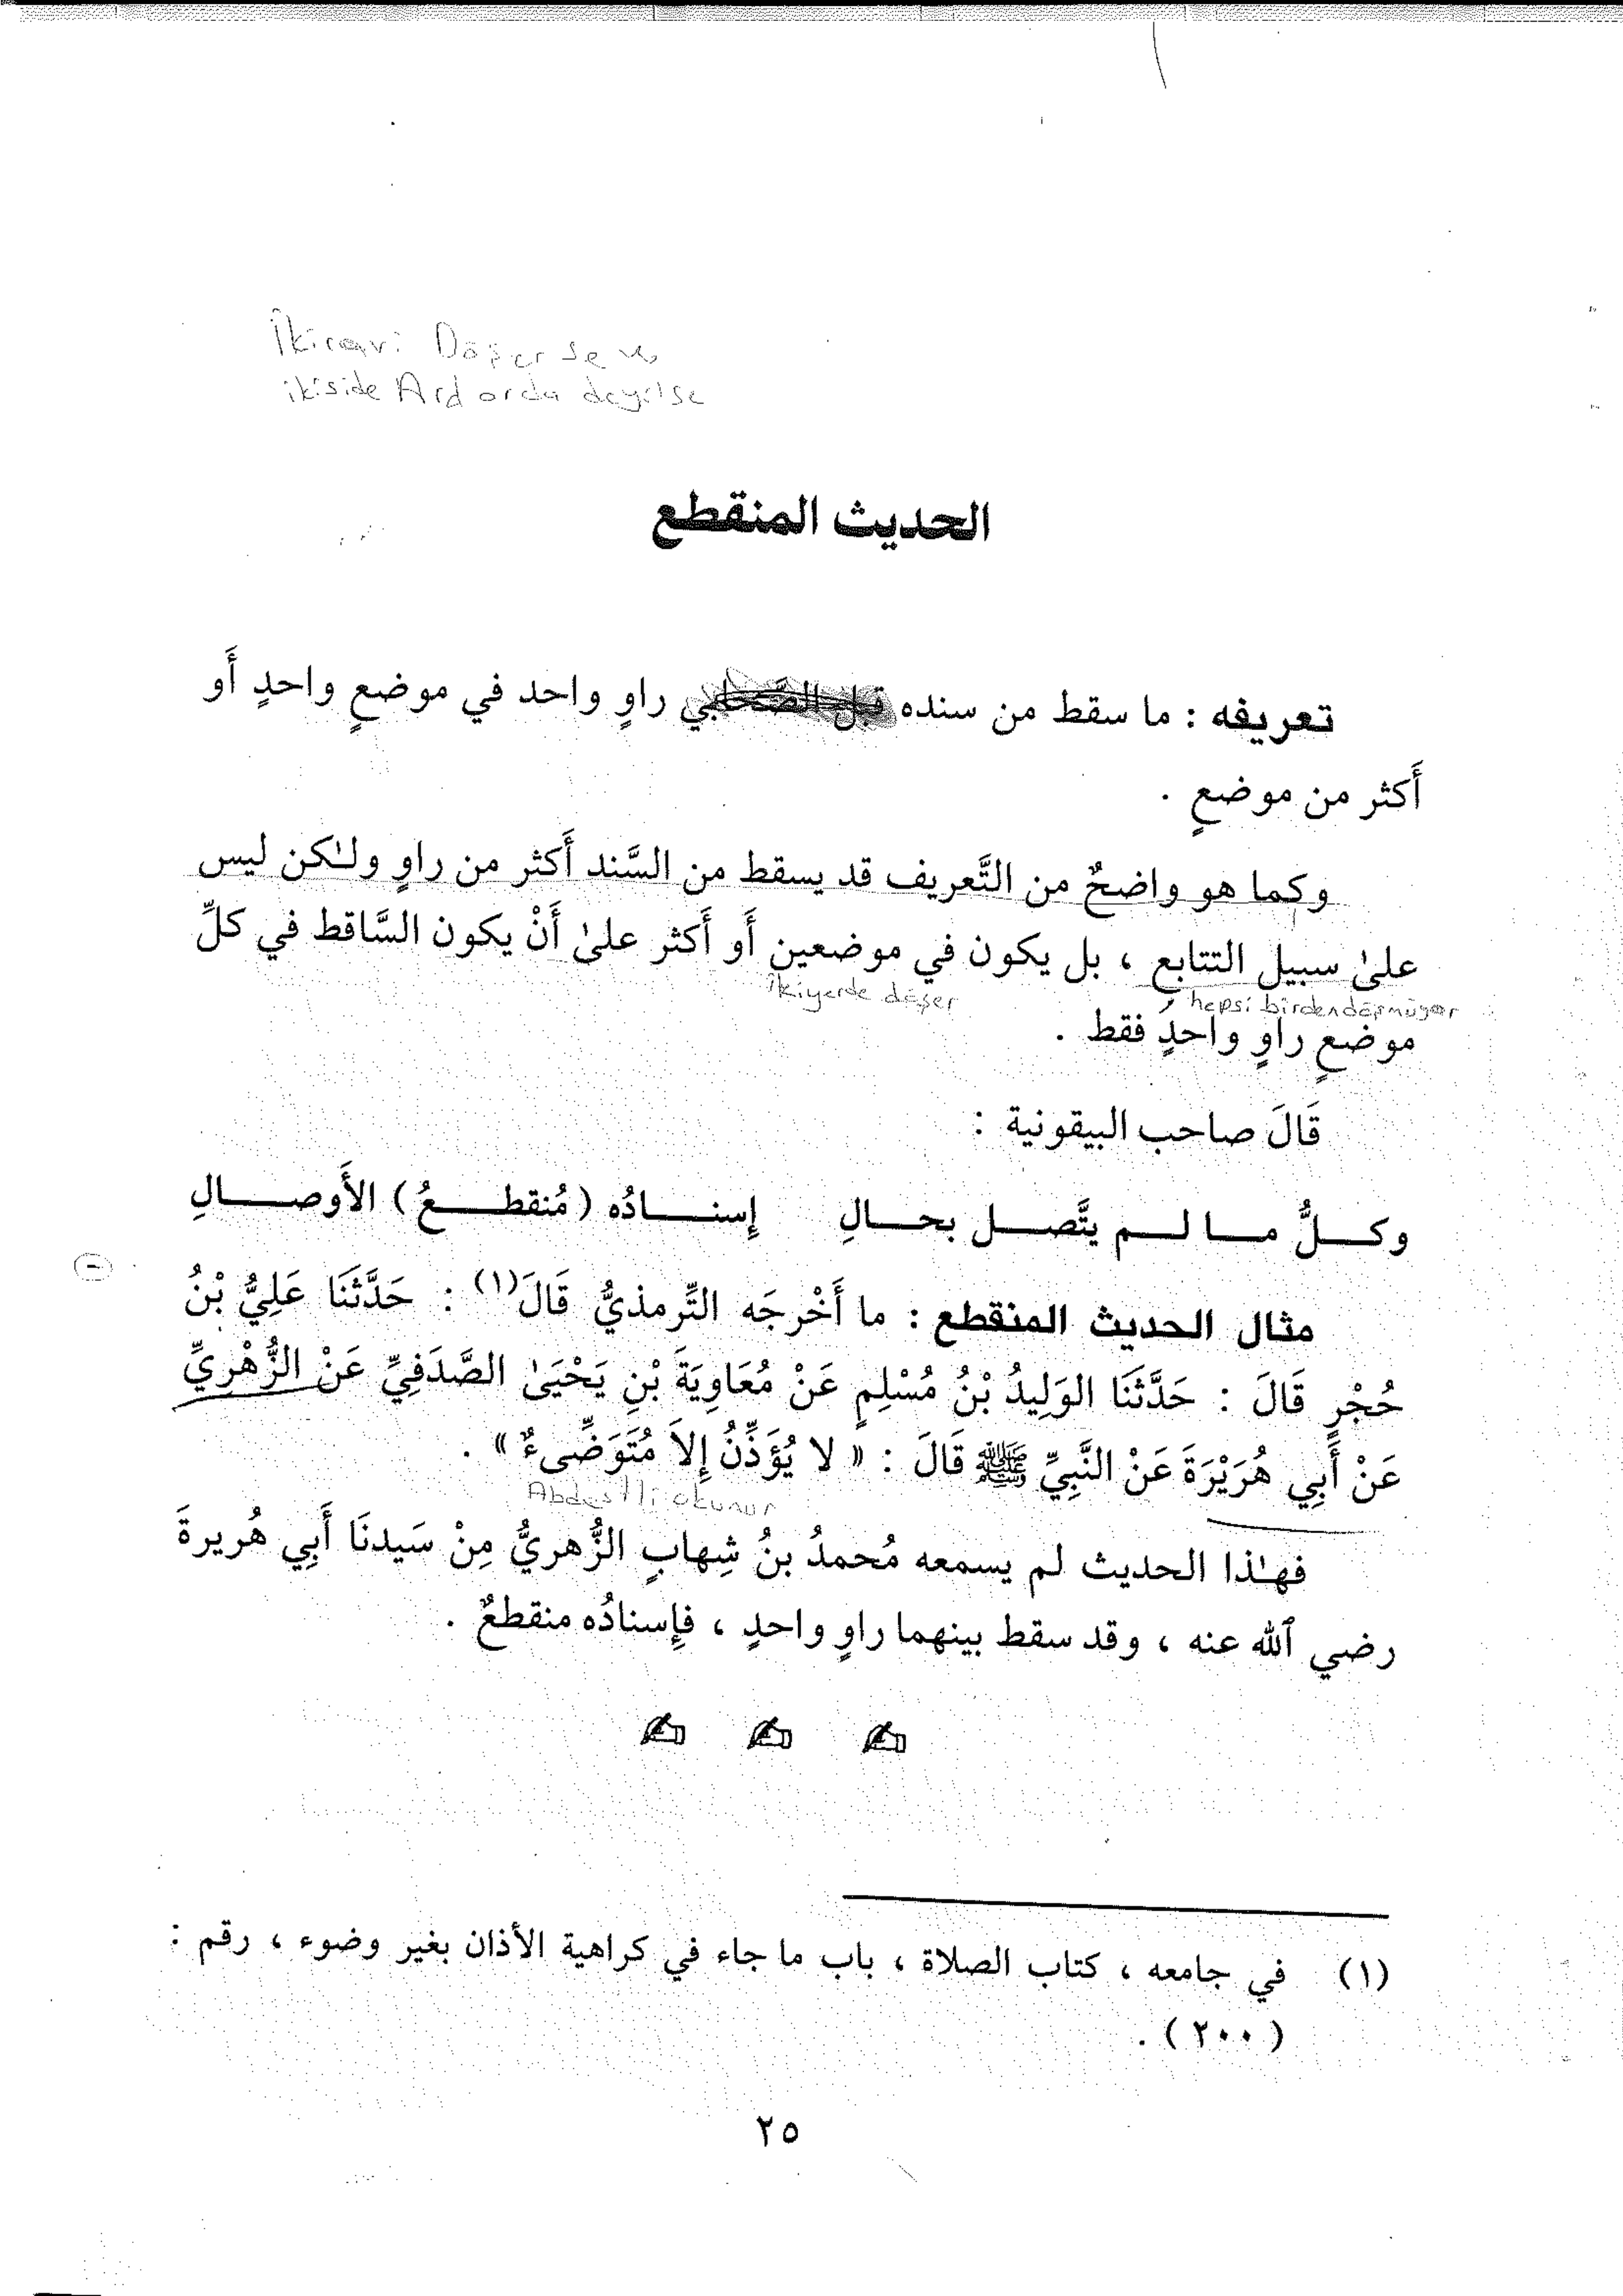 İkiravi Düşerse ve
ikiside Ard arda deyilse
الحديث المنقطع
تعريفه : ما سقط من سنده قبل الصَّحابي راوٍ واحد في موضعٍ واحدٍ أَو
أَكثر من موضعٍ .
وكما هو واضحٌ من التَّعريف قد يسقط من السَّند أَكثر من راوٍ ولـٰكن ليس
علىٰ سبيل التتابع ، بل يكون في موضعين أَو أَكثر علىٰ أَنْ يكون السَّاقط في كلِّ
hepsi birden düşmüyor ikiyerde düşer
موضعٍ راوٍ واحدٍ فقط .
قَالَ صاحب البيقونية :
وكــلُّ مــا لــم يتَّصــل بحــالِ إِسنــادُه ( مُنقطــعُ ) الأَوصــالِ
مثال الحديث المنقطع : ما أَخْرجَه التِّرمذيُّ قَالَ(١) : حَدَّثَنَا عَلِيُّ بْنُ
حُجْرٍ قَالَ : حَدَّثَنَا الوَلِيدُ بْنُ مُسْلِمٍ عَنْ مُعَاوِيَةَ بْنِ يَحْيَىٰ الصَّدَفِيِّ عَنْ الزُّهْرِيِّ
عَنْ أَبِي هُرَيْرَةَ عَنْ النَّبِيِّ ﷺ قَالَ : « لا يُؤَذِّنُ إِلاَ مُتَوَضِّىءٌ » .
Abdestli okunur
فهـٰذا الحديث لم يسمعه مُحمدُ بنُ شِهابٍ الزُّهريُّ مِنْ سَيدنَا أَبِي هُريرةَ
رضي ٱلله عنه ، وقد سقط بينهما راوٍ واحدٍ ، فإِسنادُه منقطعٌ .
(١) في جامعه ، كتاب الصلاة ، باب ما جاء في كراهية الأذان بغير وضوء ، رقم :
( ٢٠٠ ) .
٢٥